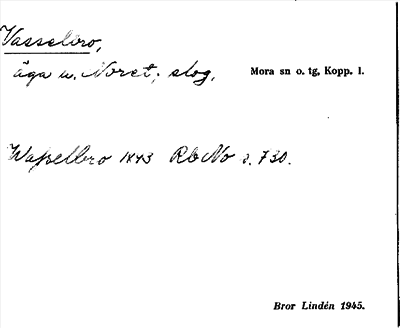 Vasselbro,
äga u. Noret; skog. Mora sn o. tg, Kopp. l.
Wasselbro 1843 RbNo s. 730.
Bror Lindén 1945.